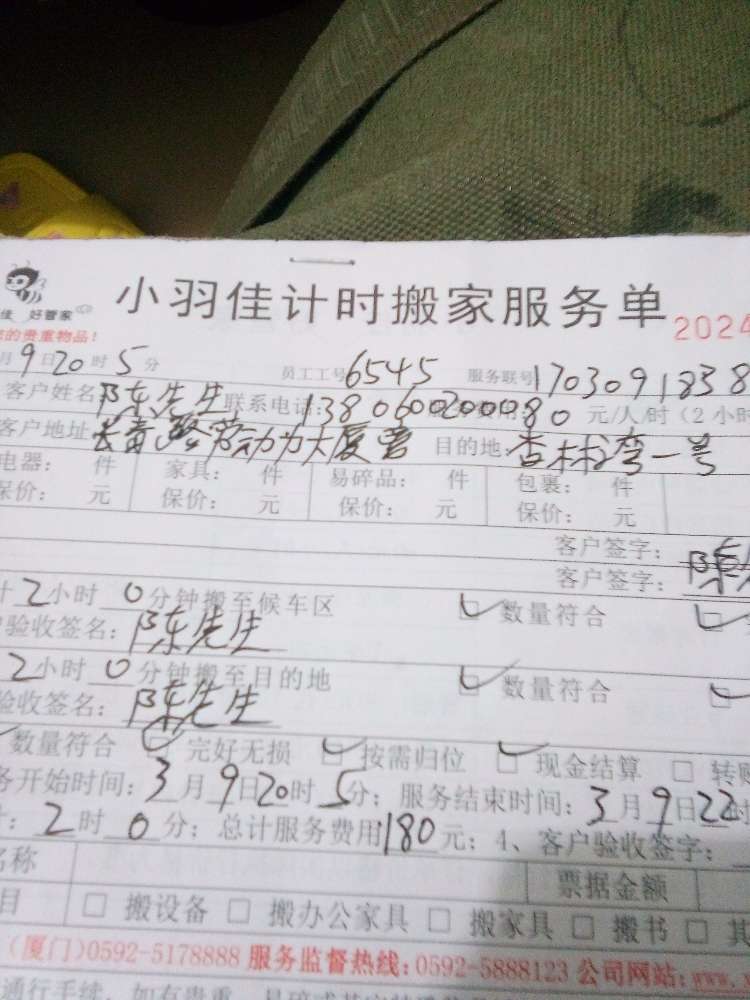 佳 好管家 小羽佳计时搬家服务单
的贵重物品! 2024
月9日20时5分 员工工号6545 服务联号1703091838
客户姓名陈先生联系电话:13806002000 费用:80元/人/时(2小时
客户地址 劳动力大厦 目的地:杏林湾一号
电器: 件 家具: 件 易碎品: 件 包裹: 件
保价: 元 保价: 元 保价: 元 保价: 元
客户签字:
客户签字:陈
计2小时0分钟搬至候车区 数量符合
户验收签名:陈先生
2小时0分钟搬至目的地 数量符合
验收签名:陈先生
数量符合 完好无损 按需归位 现金结算 转账
务开始时间:3月9日20时5分;服务结束时间:3月9日22时
计:2时0分;总计服务费用180元;4、客户验收签字:
名称 票据金额
目 搬设备 搬办公家具 搬家具 搬书 其
(厦门)0592-5178888 服务监督热线:0592-5888123 公司网站:www.
通行手续,如有贵重、易碎或其它特殊